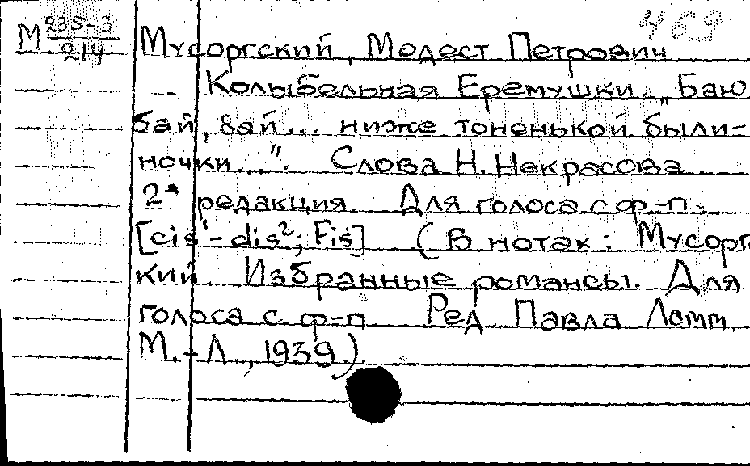 М 938-3/214
469
Мусоргский, Модест Петрович
Колыбельная Еремушки. „Баю
бай, бай... ниже тоненькой были-
ночки...". Слова Н. Некрасова
2ª редакция. Для голоса с ф-п.
[cis¹-dis²; Fis] (В нотах: Мусорг
кий Избранные романсы. Для
голоса с ф-п Ред Павла Ламм.
М.-Л, 1939.)